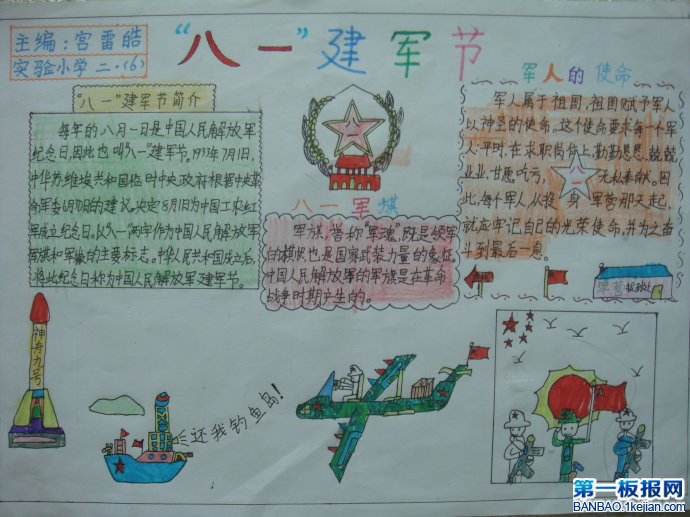 主编:宫雷皓
实验小学二.(6)
“八一”建军节
“八一”建军节简介
每年的八月一日是中国人民解放军
纪念日,因此也叫“八一”建军节。1933年7月1日,
中华苏维埃共和国临时中央政府根据中央革
命军委6月30日的建议,决定8月1日为中国工农红
军成立纪念日。以“八一”两字作为中国人民解放军
军旗和军徽的主要标志。中华人民共和国成立后,
将此纪念日称为中国人民解放军建军节。
八一
八一军旗
军旗,誉称“军魂”,既是领军
的旗帜,也是国家武装力量的象征,
中国人民解放军的军旗是在革命
战争时期产生的。
军人的使命
军人属于祖国,祖国赋予军人
以神圣的使命。这个使命要求每一个军
人:平时,在本职岗位上勤勤恳恳、兢兢
业业,甘愿吃亏,无私奉献。因
此,每个军人从投身军营那天起,
就应牢记自己的光荣使命,并为之奋
斗到最后一息。
八一
神舟九号
还我钓鱼岛!
第一板报网
BANBAO.1kejian.com